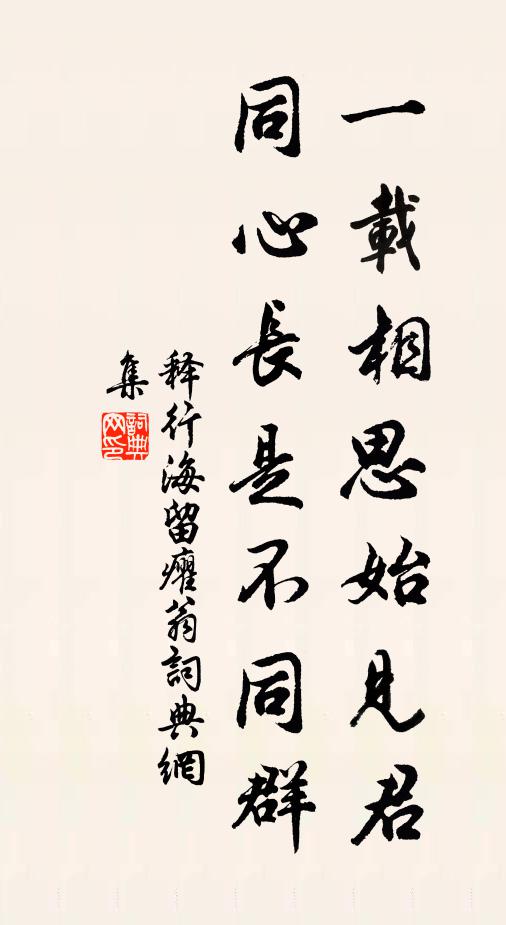 一載相思始見君
同心長是不同群
释行海留癯翁詞典網
集
詞典網印